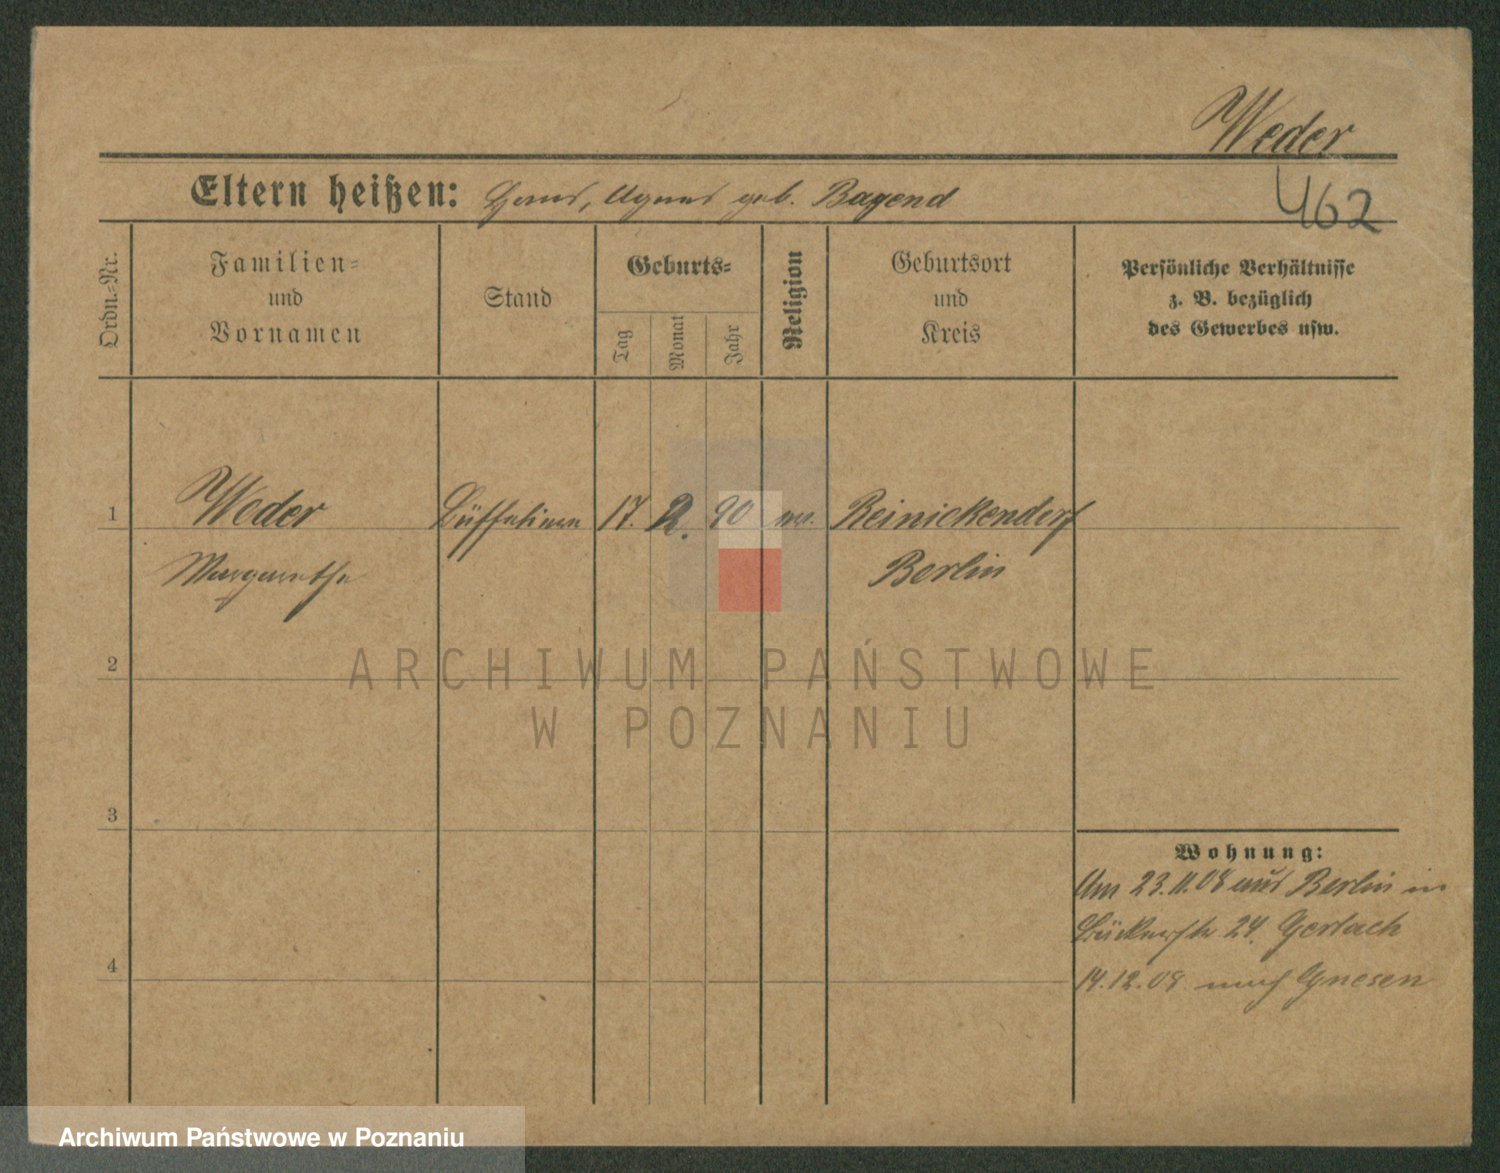 Weder
Eltern heißen: Hans, Agnes geb. Bagend
462
Ordn.-Nr.
Familien-
und
Vornamen
Stand
Geburts-
Tag
Monat
Jahr
Religion
Geburtsort
und
Kreis
Persönliche Verhältnisse
z. B. bezüglich
des Gewerbes usw.
1
Weder
Margarethe
Büffetiere
17.
2.
90
Reinickendorf
Berlin
2
3
4
Wohnung:
Am 23.11.08 aus Berlin in
24. Gerlach
14.12.08 nach Gnesen
ARCHIWUM PAŃSTWOWE
W POZNANIU
Archiwum Państwowe w Poznaniu